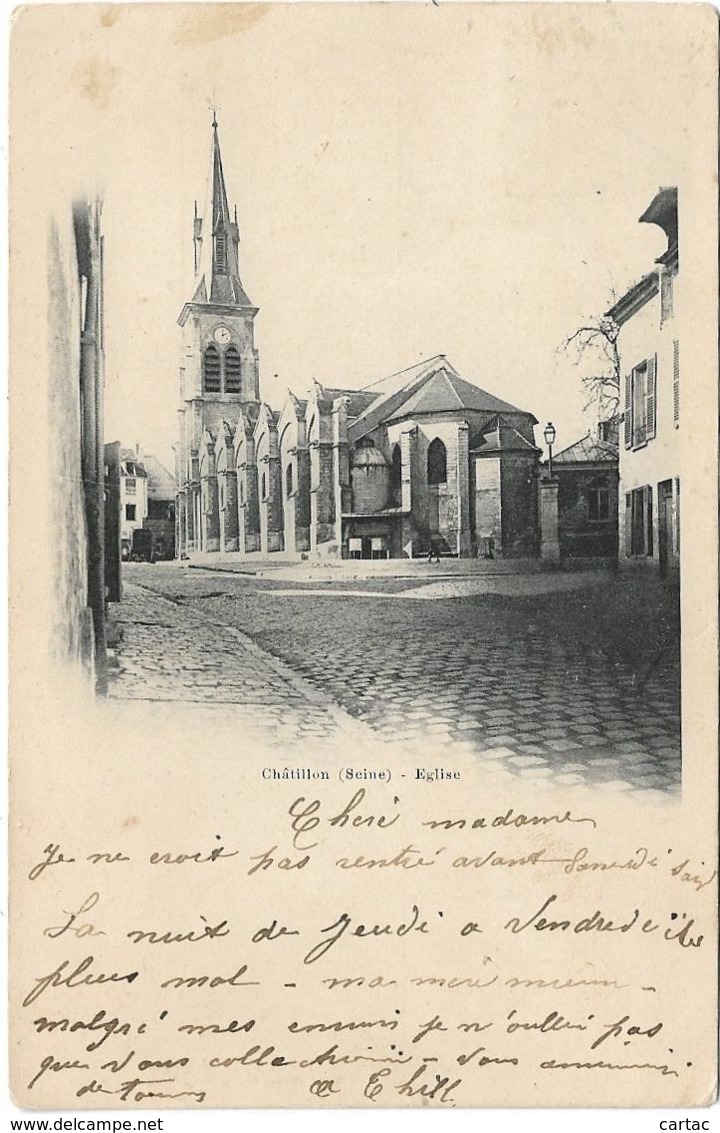 Châtillon (Seine) - Eglise
Cheré madame
Je ne croit pas rentré avant Samedi soir
La nuit de Jeudi a Vendredi
plus mal - ma meré
malgré mes ennuis je n'oulli pas
que vous collectionné - vous
de tours
www.delcampe.net
cartac